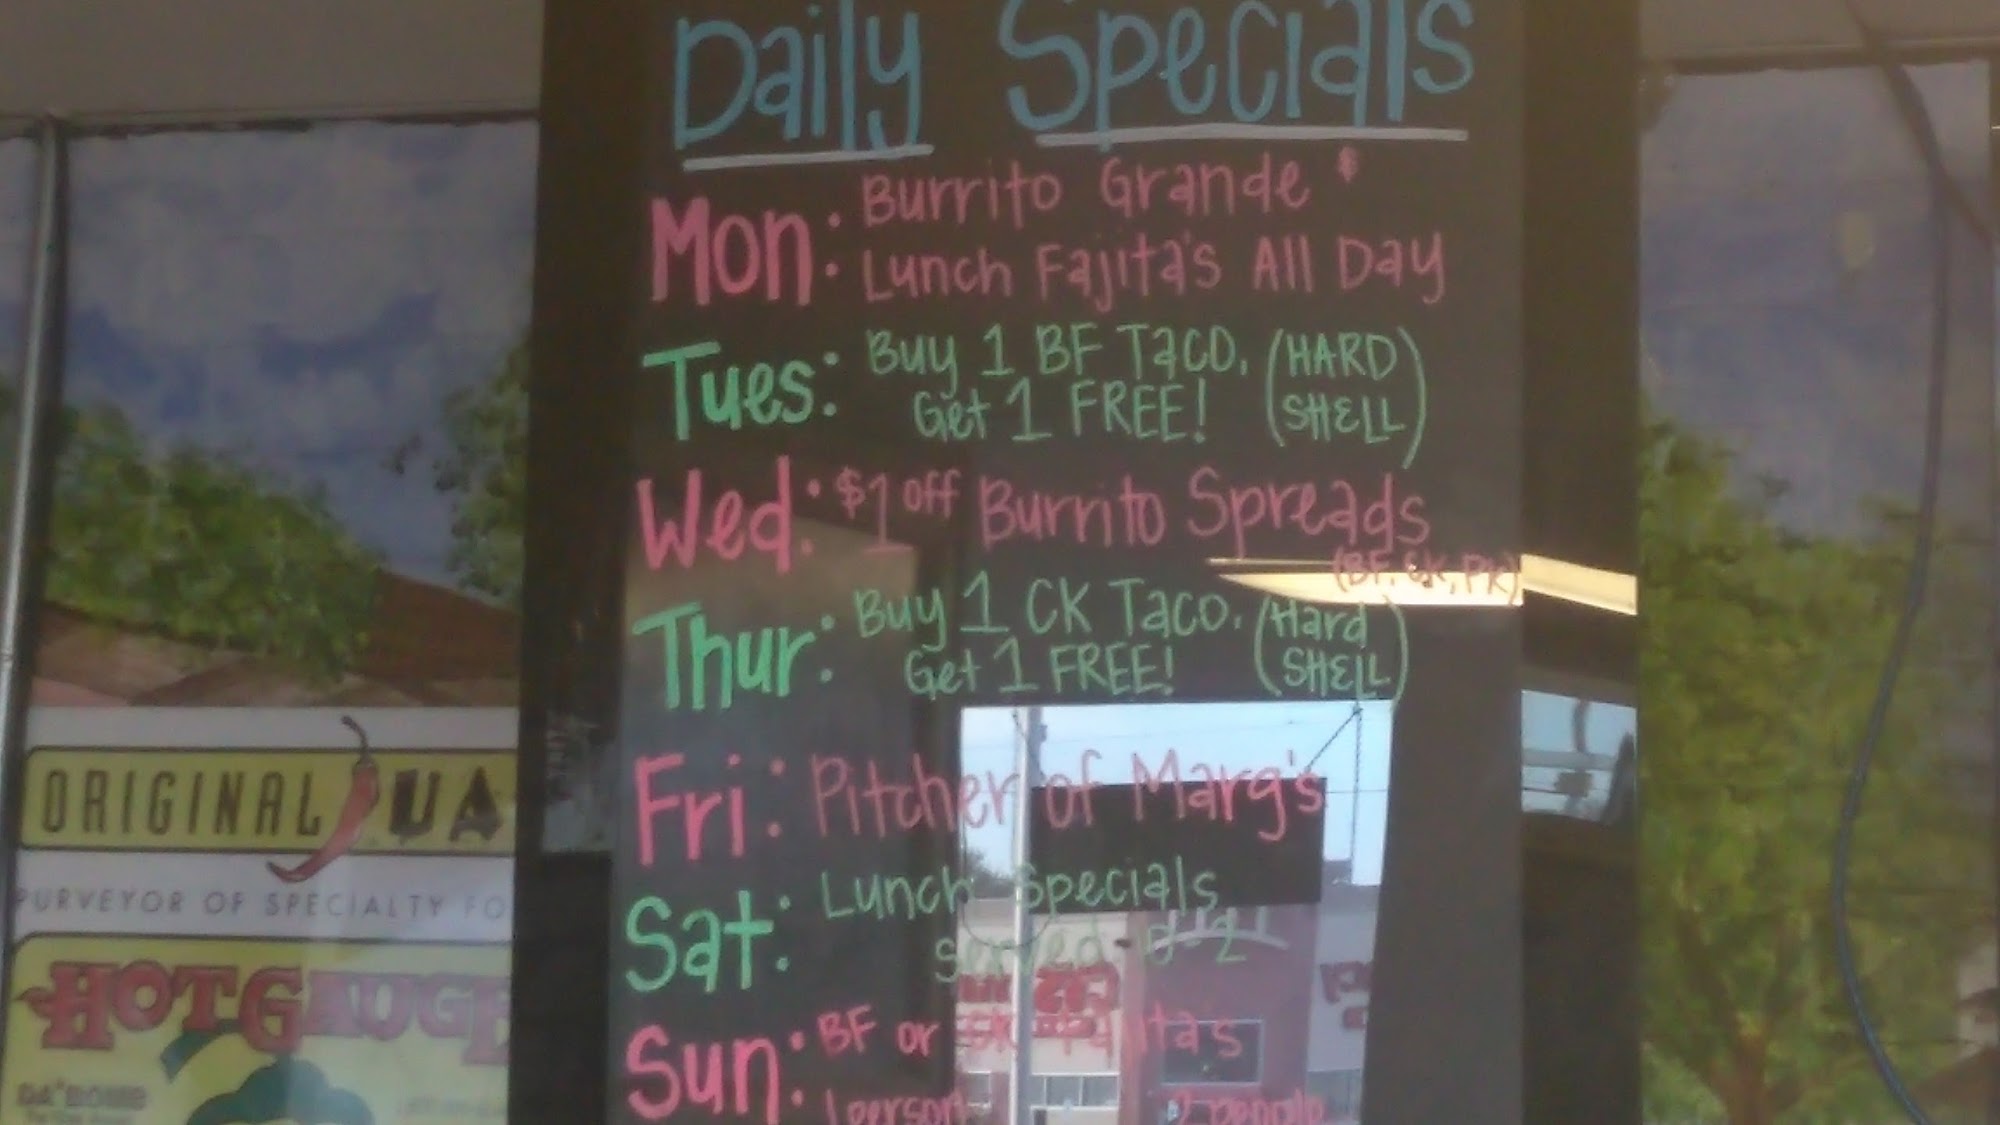 Daily Specials
Mon: Burrito Grande $
Lunch Fajita's All Day
Tues: Buy 1 BF Taco, (HARD
Get 1 FREE! SHELL)
Wed: $1 off Burrito Spreads
(BF, CK, PK)
Thur: Buy 1 CK Taco, (Hard
Get 1 FREE! SHELL)
Fri: Pitcher of Marg's
Sat: Lunch Specials
served
Sun: BF or CK Fajita's
1 person 2 people
ORIGINAL
PURVEYOR OF SPECIALTY FO
HOT GAUGE
DA' BOMB